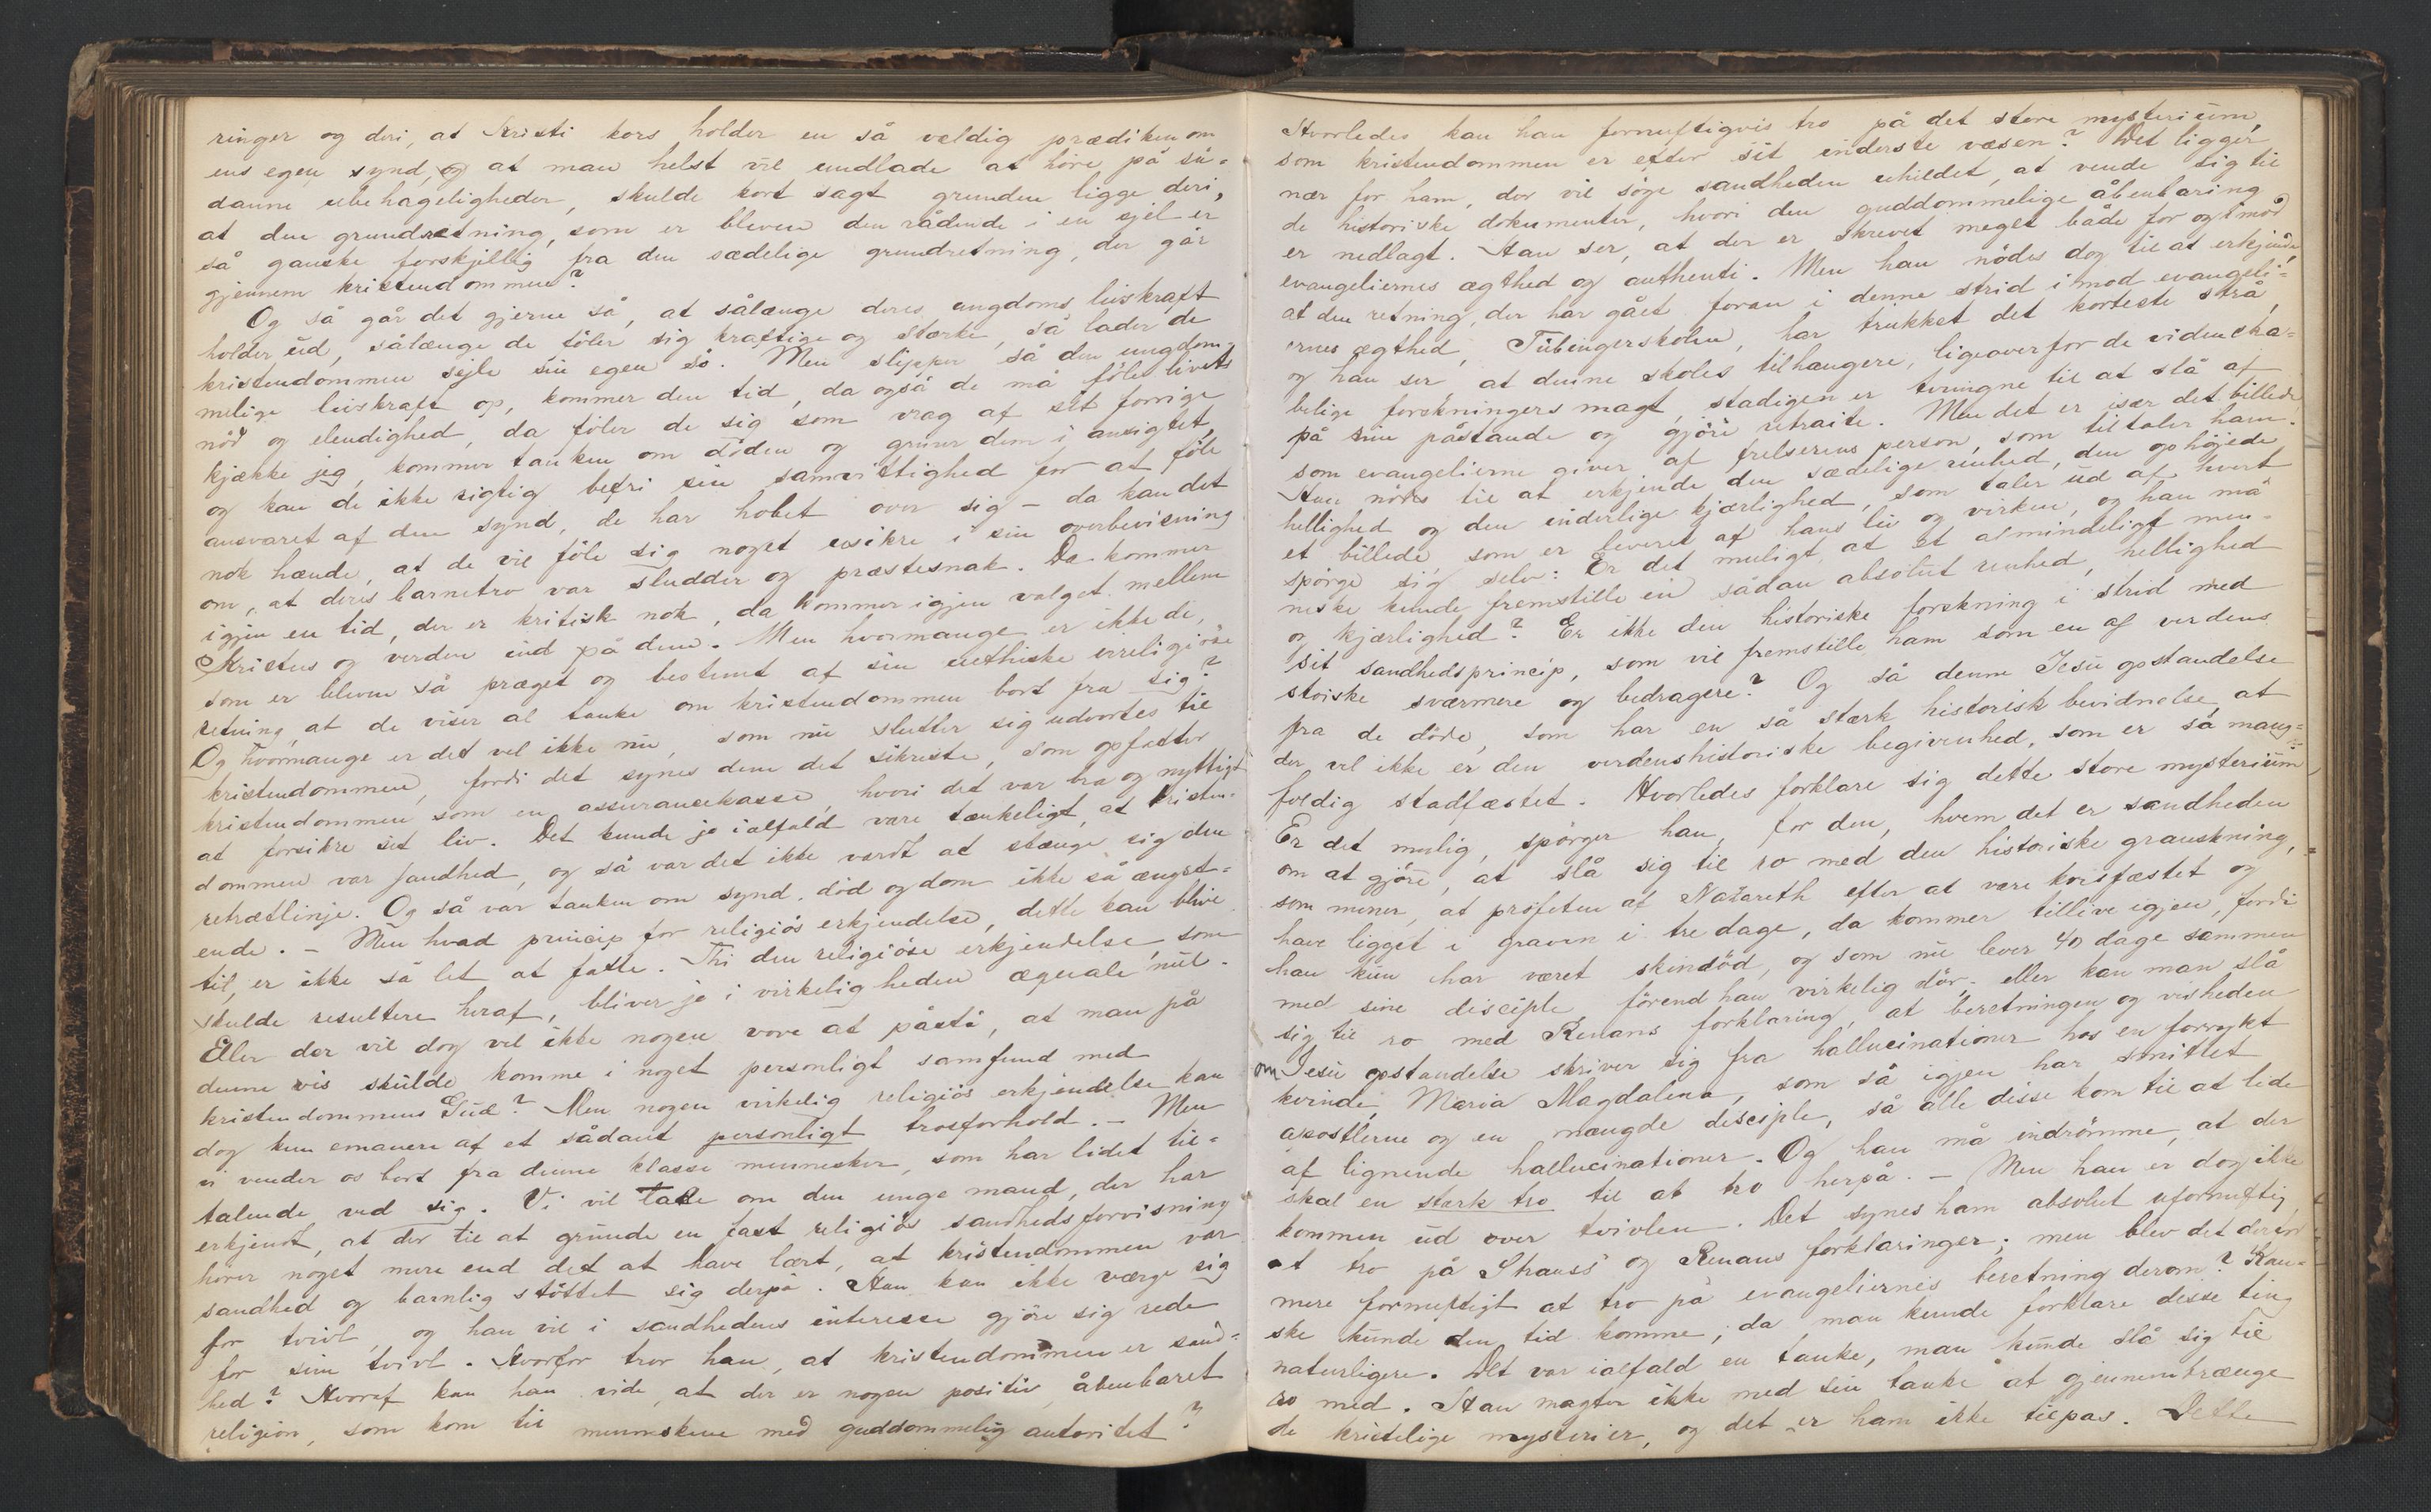 ringer og deri, at Kristi kors holder en så veldig prædiken om
ens egen synd, og at man helst vil undlade at höre på så-
danne ubehageligheder, skulde kort sagt grunden ligge deri,
at den grundretning, som er bleven den rådende i en sjel er
så ganske forskjellig fra den sædelige grundretning, der går
gjennem kristendommen?
Og så går det gjerne så, at sålænge deres ungdoms livskraft
holder ud, sålænge de föler sig kraftige og stærke, så lader de
kristendommen sejle sin egen sö. Men slipper så den ungdom-
melige livskraft op, kommer den tid, da også de må föle livets
nöd og elendighed, da föler de sig som vrag af sit forrige
kjække jeg, kommer tanken om döden og griner dem i ansigtet,
og kan de ikke rigtig befri sin samvittighed for at föle
ansvaret af den synd, de har hobet over sig – da kan det
nok hænde, at de vil föle sig noget usikre i sin overbevisning
om, at deres barnetro var sludder og præstesnak. Da kommer
igjen en tid, der er kritisk nok, da kommer igjen valget mellem
Kristus og verden ind på dem. Men hvormange er ikke de,
som er bleven så præget og bestemt af sin uethiske irreligiöse
retning, at de viser al tanke om kristendommen bort fra sig?
Og hvormange er det vel ikke nu, som nu slutter sig udvortes til
kristendommen, fordi det synes dem det sikreste, som opfatter
kristendommen som en assurancekasse, hvori det var bra og nyttigt
at forsikre sit liv. Det kunde jo ialfald være tænkeligt, at kristen-
dommen var sandhed, og så var det ikke værdt at stænge sig den
retrætlinje. Og så var tanken om synd, död og dom ikke så ængst-
ende. – Men hvad princip for religiös erkjendelse, dette kan blive
til, er ikke så let at fatte. Thi den religiöse erkjendelse, som
skulde resultere heraf, bliver jo i virkeligheden æquale nul.
Eller der vil dog vel ikke nogen vove at påstå, at man på
denne vis skulde komme i noget personligt samfund med
kristendommens Gud? Men nogen virkelig religiös erkjendelse kan
dog kun emanere af et sådant personligt trosforhold. – Men
vi vender os bort fra denne klasse mennesker, som har lidet til-
talende ved sig. Vi vil tale om den unge mand, der har
erkjendt, at der til at grunde en fast religiös sandhedsforvisning
hörer noget mere end det at have lært, at kristendommen var
sandhed og barnlig støttet sig derpå. Han kan ikke værge sig
for tvivl, og han vil i sandhedens interesse gjöre sig rede
for sin tvivl. Hvorfor tror han, at kristendommen er sand-
hed? Hvoraf kan han vide, at der er nogen positiv, åbenbaret
religion, som kom til menneskene med guddommelig autoritet?
Hvorledes kan han fornuftigvis tro på det store mysterium,
som kristendommen er efter sit inderste væsen? Det ligger
nær for ham, der vil söge sandheden uhildet, at vende sig til
de historiske dokumenter, hvori den guddommelige åbenbaring
er nedlagt. Han ser, at der er skrevet meget både for og imod
evangeliernes ægthed og authenti. Men han nödes dog til at erkjende,
at den retning, der har gået foran i denne strid imod evangeli-
ernes ægthed, Tübingerskolen, har trukket det korteste strå,
og han ser at denne skoles tilhængere, ligeoverfor de videnska-
belige forskningers magt, stadigen er tvungne til at slå af
på sine påstande og gjöre retraite. Men det er især det billede,
som evangelierne giver af frelserens person, som tiltaler ham.
Han nödes til at erkjende den sædelige renhed, den ophöjede
hellighed og den inderlige kjærlighed, som taler ud af hvert
et billede, som er leveret af hans liv og virken, og han må
spörge sig selv: Er det muligt, at et almindeligt men-
neske kunde fremstille en sådan absolut renhed, hellighed
og kjærlighed? Er ikke den historiske forskning i strid med
sit sandhedsprincip, som vil fremstille ham som en af verdens
störske sværmere og bedragere? Og så denne Jesu opstandelse
fra de döde, som har en så stærk historisk bevidnelse, at
der vel ikke er den verdenshistoriske begivenhed, som er så mang-
foldig stadfæstet. Hvorledes forklare sig dette store mysterium?
Er det mulig, spörger han, for den, hvem det er sandheden
om at gjöre, at slå sig til ro med den historiske granskning,
som mener, at profeten af Nazareth efter at være korsfæstet og
have ligget i graven i tre dage, da kommer tillive igjen, fordi
han kun har været skindöd, og som nu lever 40 dage sammen
med sine disciple förend han virkelig dör, eller kan man slå
sig til ro med Renans forklaring, at beretningen og visheden
om Jesu opstandelse skriver sig fra hallucinationer hos en forrykt
kvinde, Maria Magdalena, som så igjen har smittet
apostlerne og en mængde disciple, så alle disse kom til at lide
af lignende hallucinationer. Og han må indrömme, at der
skal en stærk tro til at tro herpå. – Men han er dog ikke
kommen ud over tvivlen. Det synes ham absolut ufornuftig
at tro på Strauss' og Renans forklaringer; men blev det derfor
mere fornuftigt at tro på evangeliernes beretning derom? Kan-
ske kunde den tid komme, da man kunde forklare disse ting
naturligere. Det var ialfald en tanke, man kunde slå sig til
ro med. Han magter ikke med sin tanke at gjennemtrænge
de kristelige mysterier, og det er ham ikke tilpas. Dette